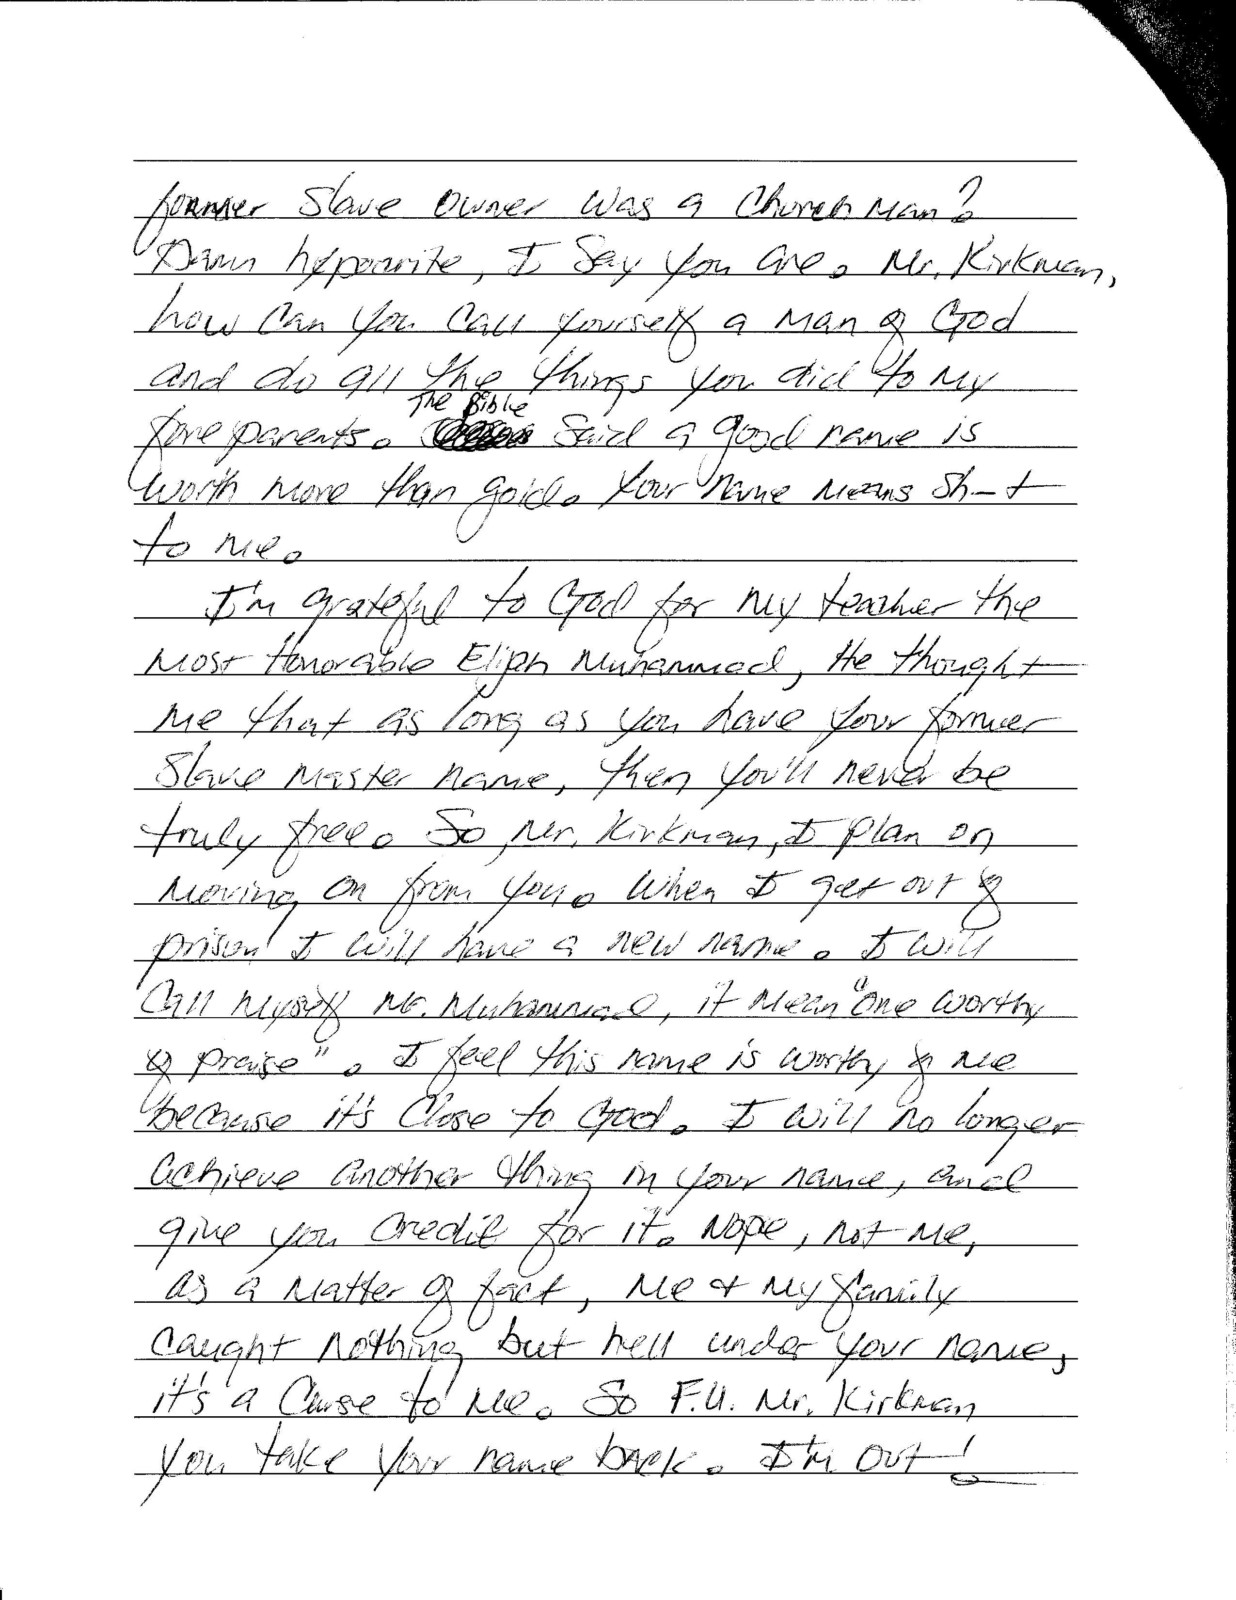 former Slave owner was a Church man?
Damn hypocrite, I Say you are. Mr. Kirkman,
how can you call yourself a man of God
and do all the things you did to my
The Bible
foreparents. Said a good name is
worth more than gold. Your name means Sh-t
to me.
I'm grateful to God for my teacher the
Most Honorable Elijah Muhammad, He thought
me that as long as you have your former
Slave master name, then you'll never be
truly free. So, Mr. Kirkman, I plan on
moving on from you. When I get out of
prison I will have a new name. I will
Call myself Mr. Muhammad, it mean "One worthy
of praise". I feel this name is worthy of me
because it's Close to God. I will no longer
achieve another thing in your name, and
give you credit for it. Nope, not me,
as a matter of fact, me + my family
caught nothing but hell under your name,
it's a Curse to me. So F.U. Mr. Kirkman
you take your name back. I'm out!